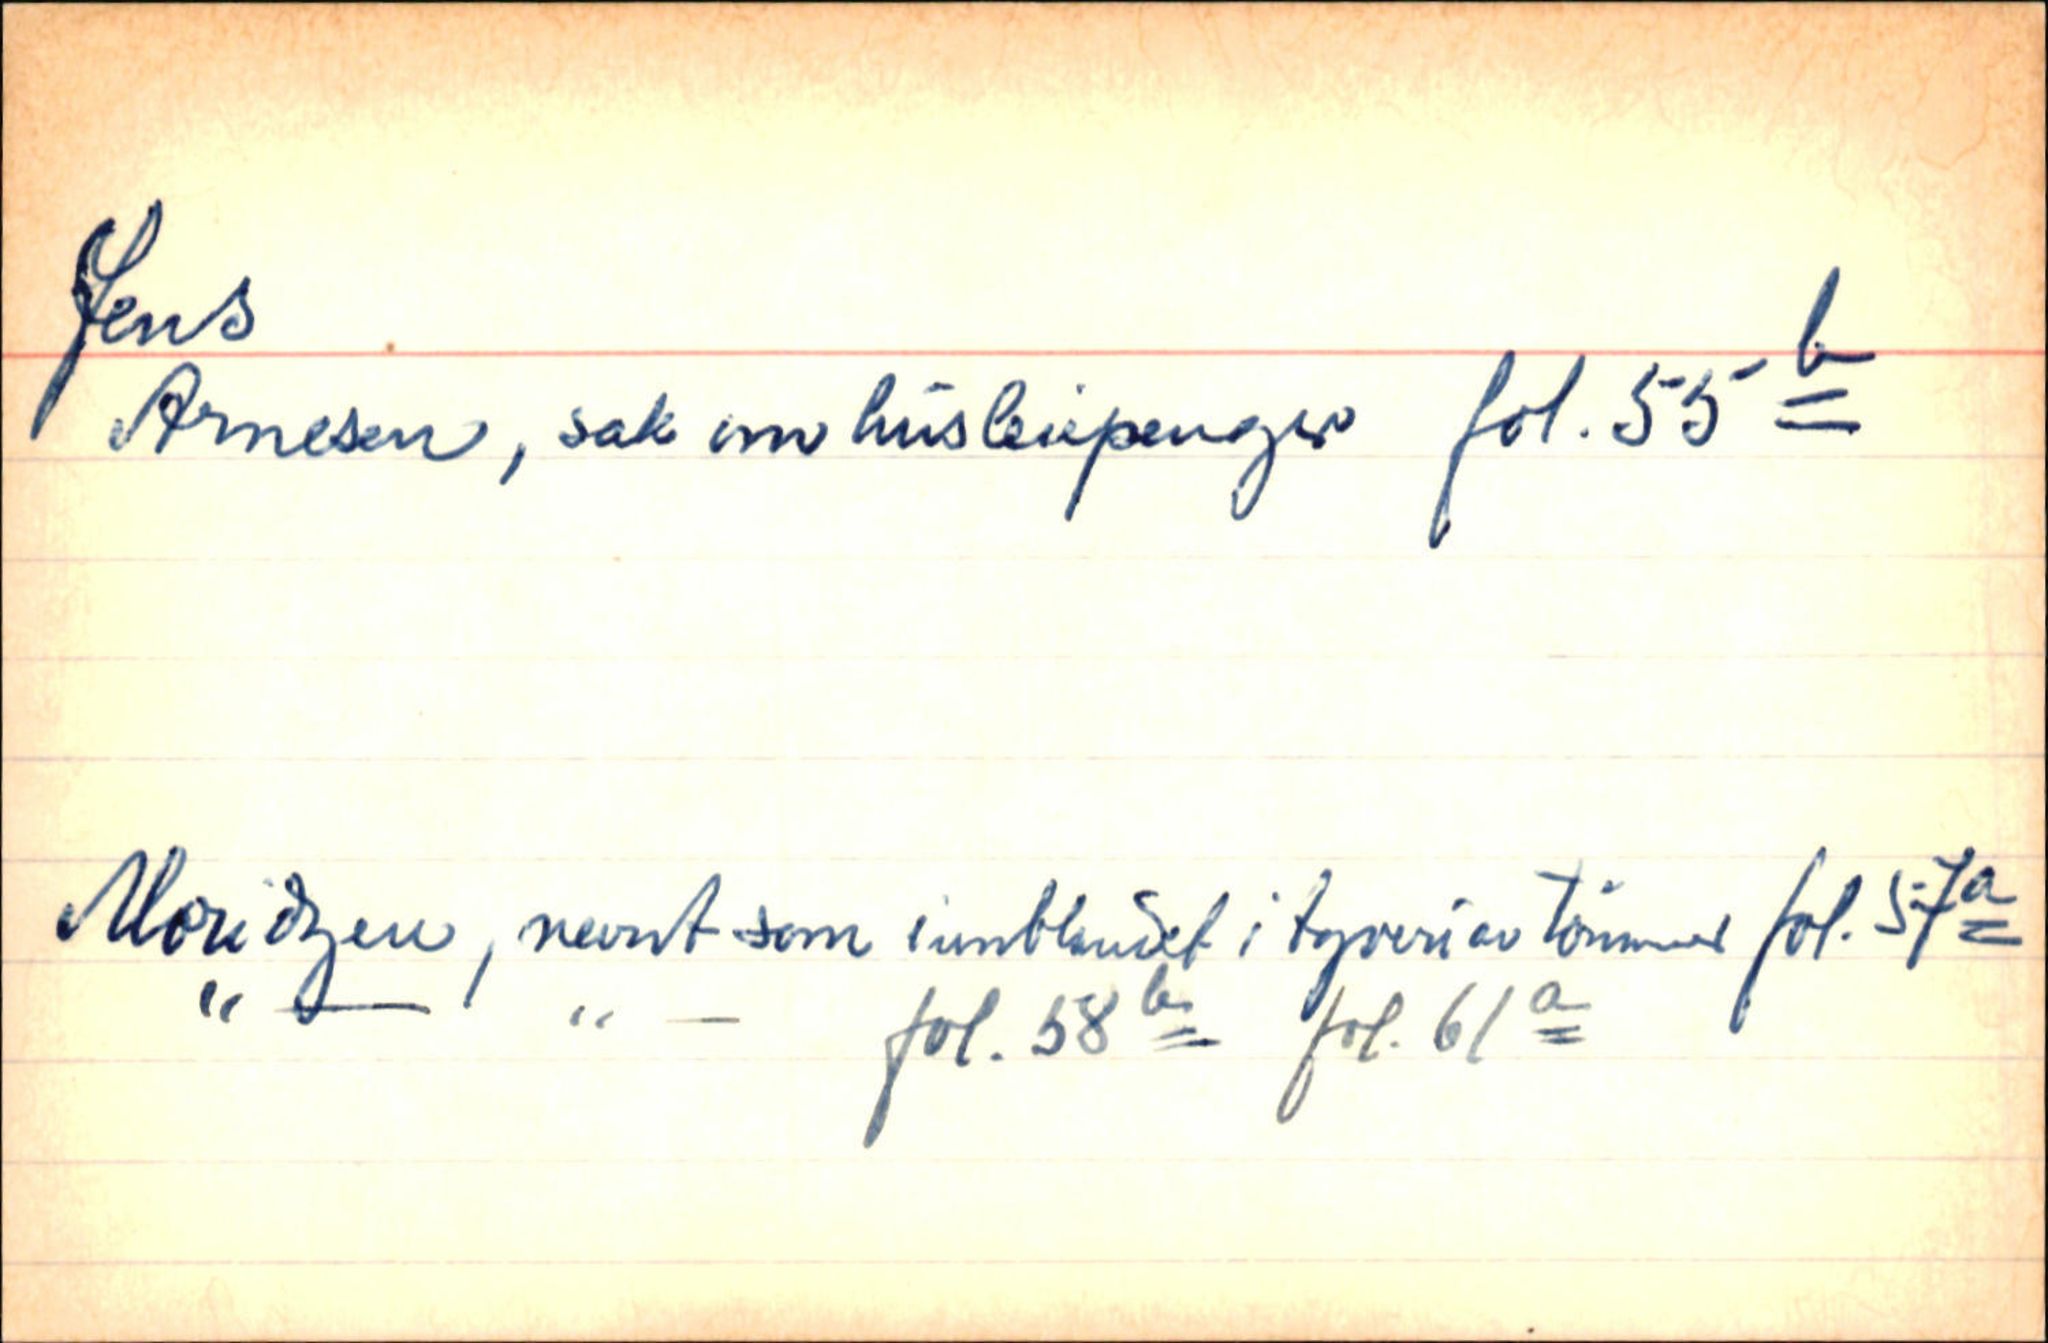 Jens
Arnesen, sak om husleiepenger fol. 55 b
Moridzen, nevnt som innblandet i tyveri av tömmer fol. 57a
" — " — fol. 58 b fol. 61 a